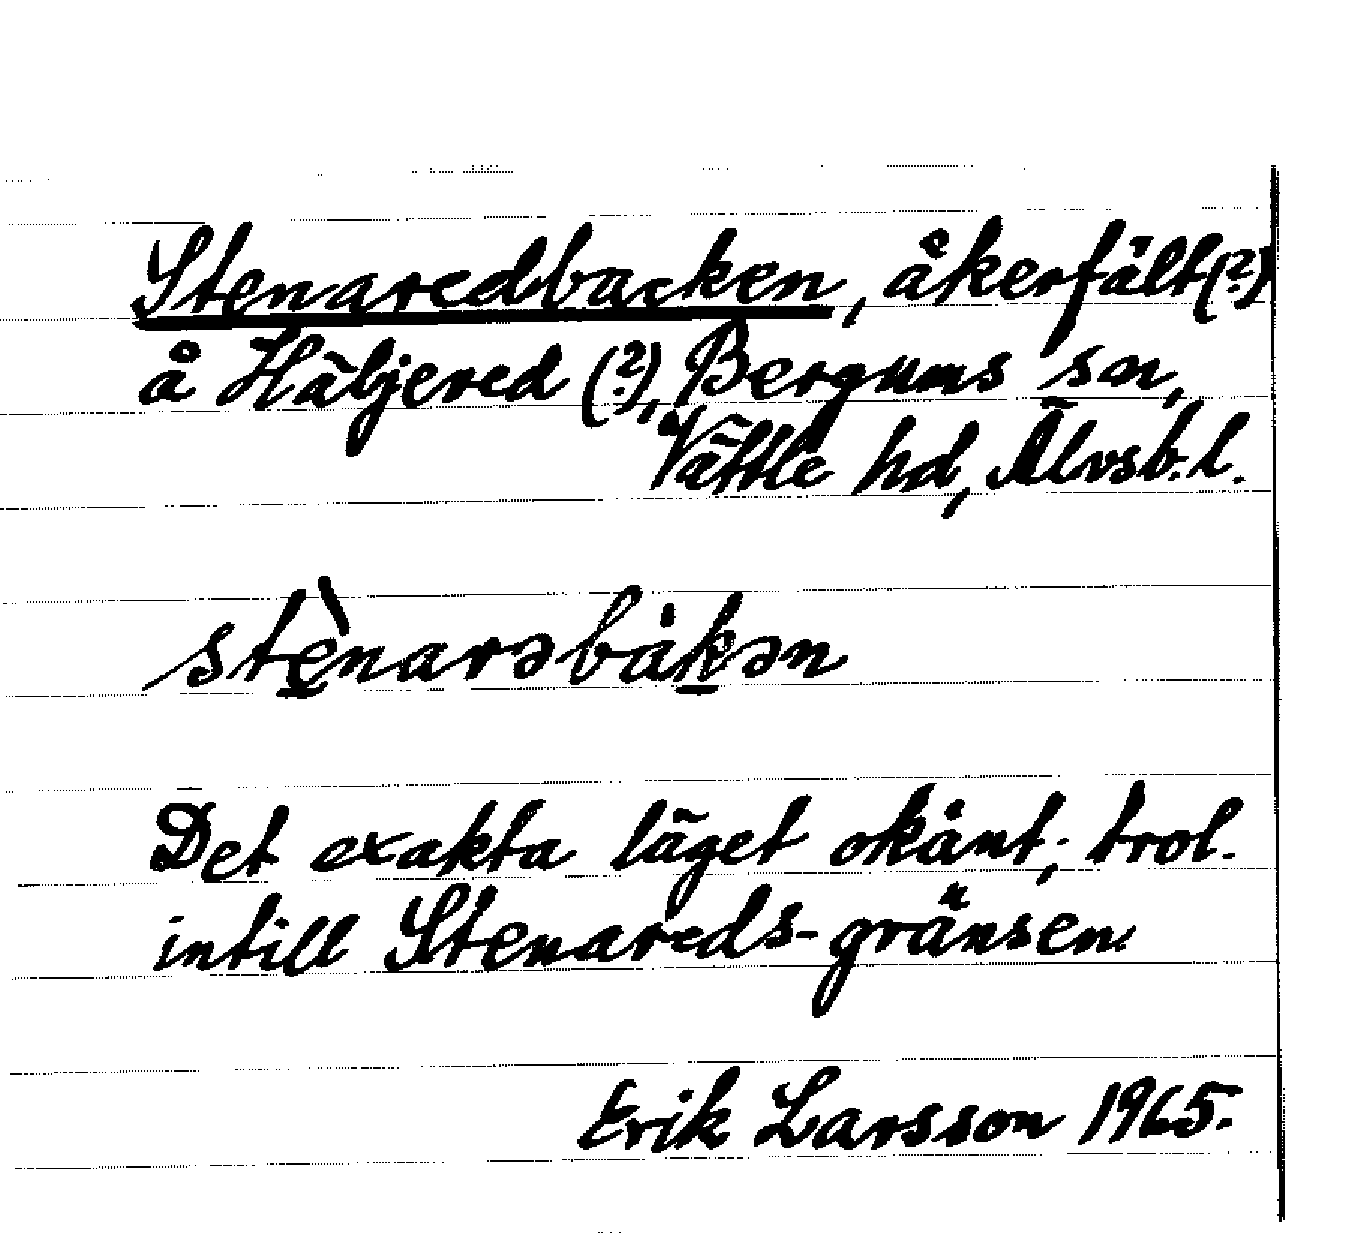 Stenaredbacken, åkerfält(?)
å Häljered (?), Bergums sn,
Vättle hd, Älvsb. l.
stè̱narəbàḵən
Det exakta läget okänt; trol.
intill Stenareds-gränsen.
Erik Larsson 1965.